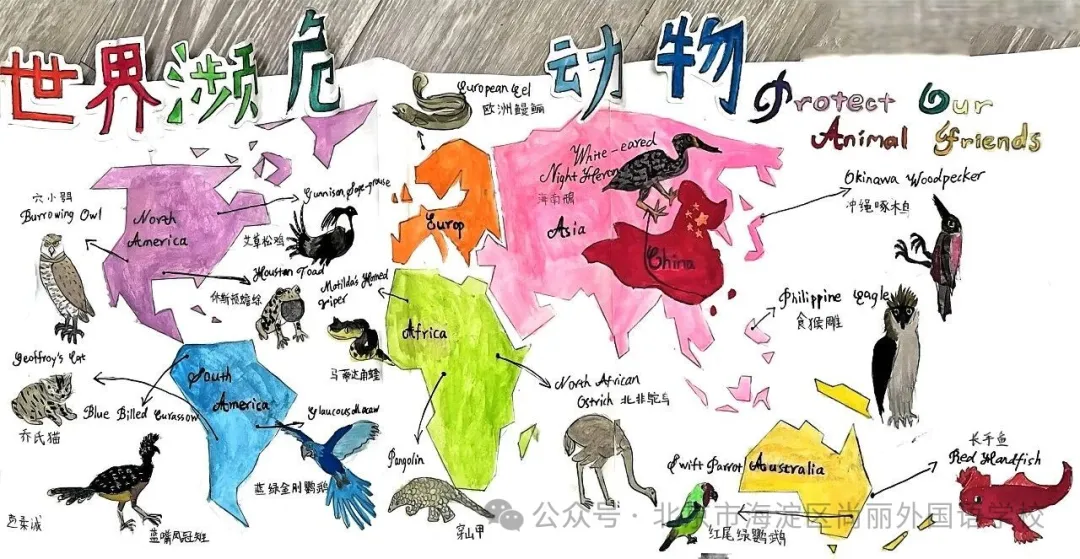 世界濒危动物
Protect Our
Animal Friends
European Eel
欧洲鳗鲡
White-eared
Night Heron
海南鳽
Okinawa Woodpecker
冲绳啄木鸟
穴小鸮
Burrowing Owl
North
America
Gunnison Sage-grouse
艾草松鸡
Europ
Asia
China
Houston Toad
休斯顿蟾蜍
Matilda's Horned
Viper
马蒂达角蝰
Africa
Philippine Eagle
食猴雕
Geoffroy's Cat
乔氏猫
South
America
Blue Billed Curassow
蓝嘴凤冠雉
Glaucous Macaw
蓝绿金刚鹦鹉
Pangolin
穿山甲
North African
Ostrich 北非鸵鸟
Swift Parrot
红尾绿鹦鹉
Australia
长手鱼
Red Handfish
公众号·北京市海淀区尚丽外国语学校